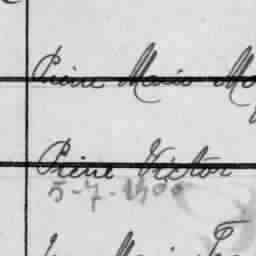 Pierre Marie
Pierre Victor
5-7-1900
Marie